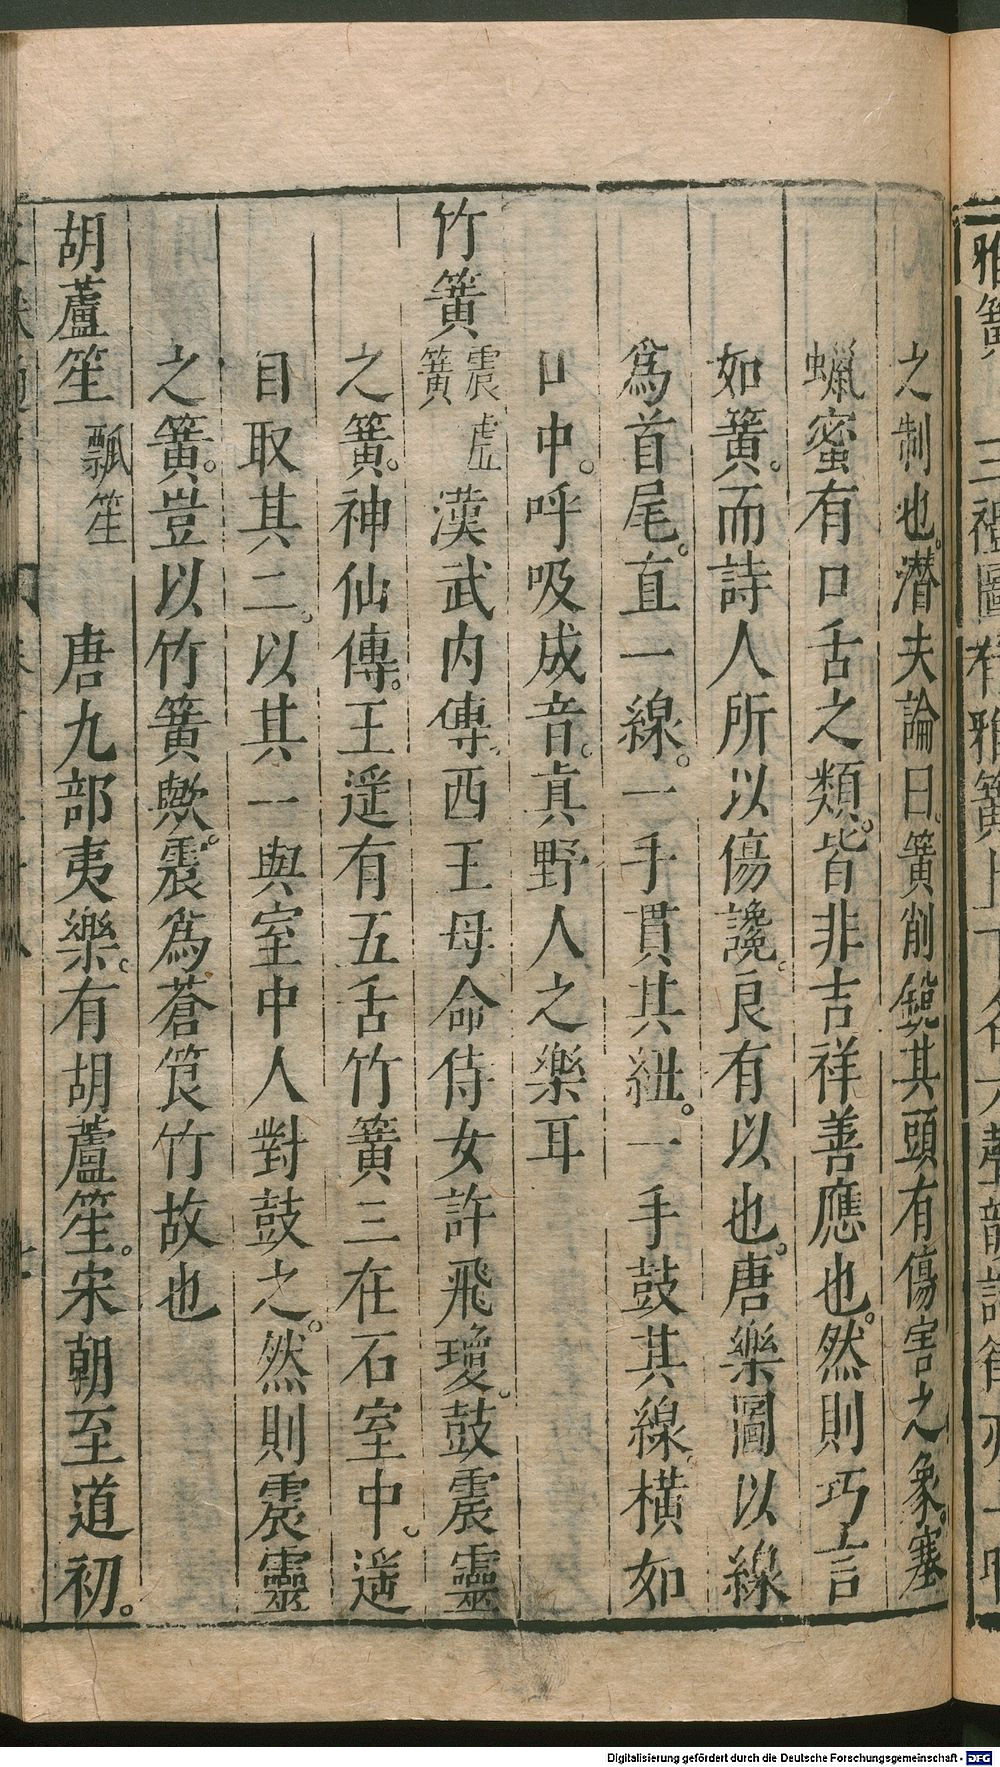 之制也。潛夫論曰。簧削銳其頭有傷害之象。塞
蠟蜜有口舌之類。皆非吉祥善應也。然則巧言
如簧。而詩人所以傷讒。良有以也。唐樂圖以線
爲首尾。直一線。一手貫其紐。一手鼓其線橫如
口中。呼吸成音。真野人之樂耳
竹簧 震虛簧 漢武內傳。西王母命侍女許飛瓊。鼓震靈
之簧。神仙傳。王遥有五舌竹簧三在石室中。遥
自取其二。以其一與室中人對鼓之。然則震靈
之簧。豈以竹簧歟。震爲蒼筤竹故也
胡蘆笙 瓢笙 唐九部夷樂。有胡蘆笙。宋朝至道初。
Digitalisierung gefördert durch die Deutsche Forschungsgemeinschaft - DFG